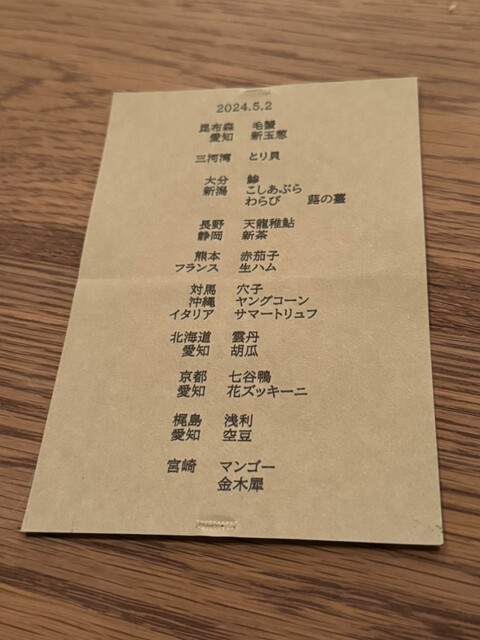 2024.5.2
昆布森 毛蟹
愛知 新玉葱
三河湾 とり貝
大分 鯵
新潟 こしあぶら
わらび 蕗の薹
長野 天龍稚鮎
静岡 新茶
熊本 赤茄子
フランス 生ハム
対馬 穴子
沖縄 ヤングコーン
イタリア サマートリュフ
北海道 雲丹
愛知 胡瓜
京都 七谷鴨
愛知 花ズッキーニ
梶島 浅利
愛知 空豆
宮崎 マンゴー
金木犀